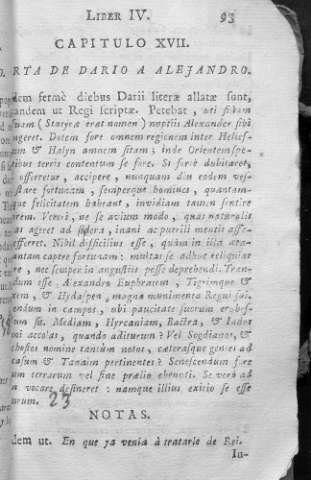 LIBER IV. 93
CAPITULO XVII.
RTA DE DARIO A ALEJANDRO.
dem fermè diebus Darii literæ allatæ sunt,
andem ut Regi scriptæ. Petebat, uti filiam
suam (Statyræ erat nomen) nuptiis Alexander sibi
ngeret. Dotem fore omnem regionem inter Helles-
um & Halyn amnem sitam; inde Orientem spe-
ibus terris contentum se fore. Si fortè dubitaret,
offerretur, accipere, nunquam diu eodem ves-
stare fortunam, semperque homines, quantam-
que felicitatem habeant, invidiam tamen sentire
orem. Vereri, ne se avium modo, quas naturalis
as ageret ad sidera, inani ac puerili mentis affec-
efferret. Nihil difficilius esse, quàm in illa æta-
antam capere fortunam: multas se adhuc reliquias
re, nec semper in angustiis posse deprehendi. Tran-
dum esse Alexandro Euphratem, Tigrimque &
xem, & Hydaspen, magna munimenta Regni sui.
endum in campos, ubi paucitate suorum erubes-
um sit. Mediam, Hyrcaniam, Bactra, & Indos
ni accolas, quando aditurum? Vel Sogdianos, &
chosios nomine tantùm notos, cæterasque gentes ad
casum & Tanaim pertinentes? Senescendum fore
um terrarum vel sine prælio obeunti. Se verò ad
n vocare desineret: namque illius exitio se esse
urum. 23
NOTAS.
dem ut. En que ya venia à tratarle de Rei.
In-